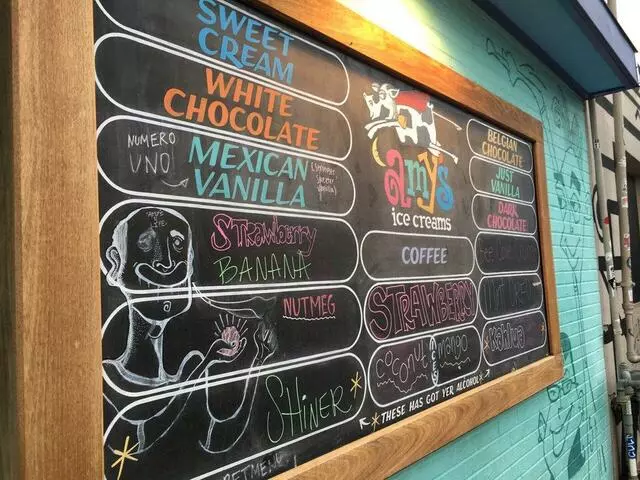 SWEET
CREAM
WHITE
CHOCOLATE
NUMERO
UNO
MEXICAN
VANILLA
Strawberry
BANANA
NUTMEG
SHINER
amy's
ice creams
COFFEE
STRAWBERRY
COCONUT
mango
THESE HAS GOT YER ALCOHOL
BELGIAN
CHOCOLATE
JUST
VANILLA
DARK
CHOCOLATE
Kahlua